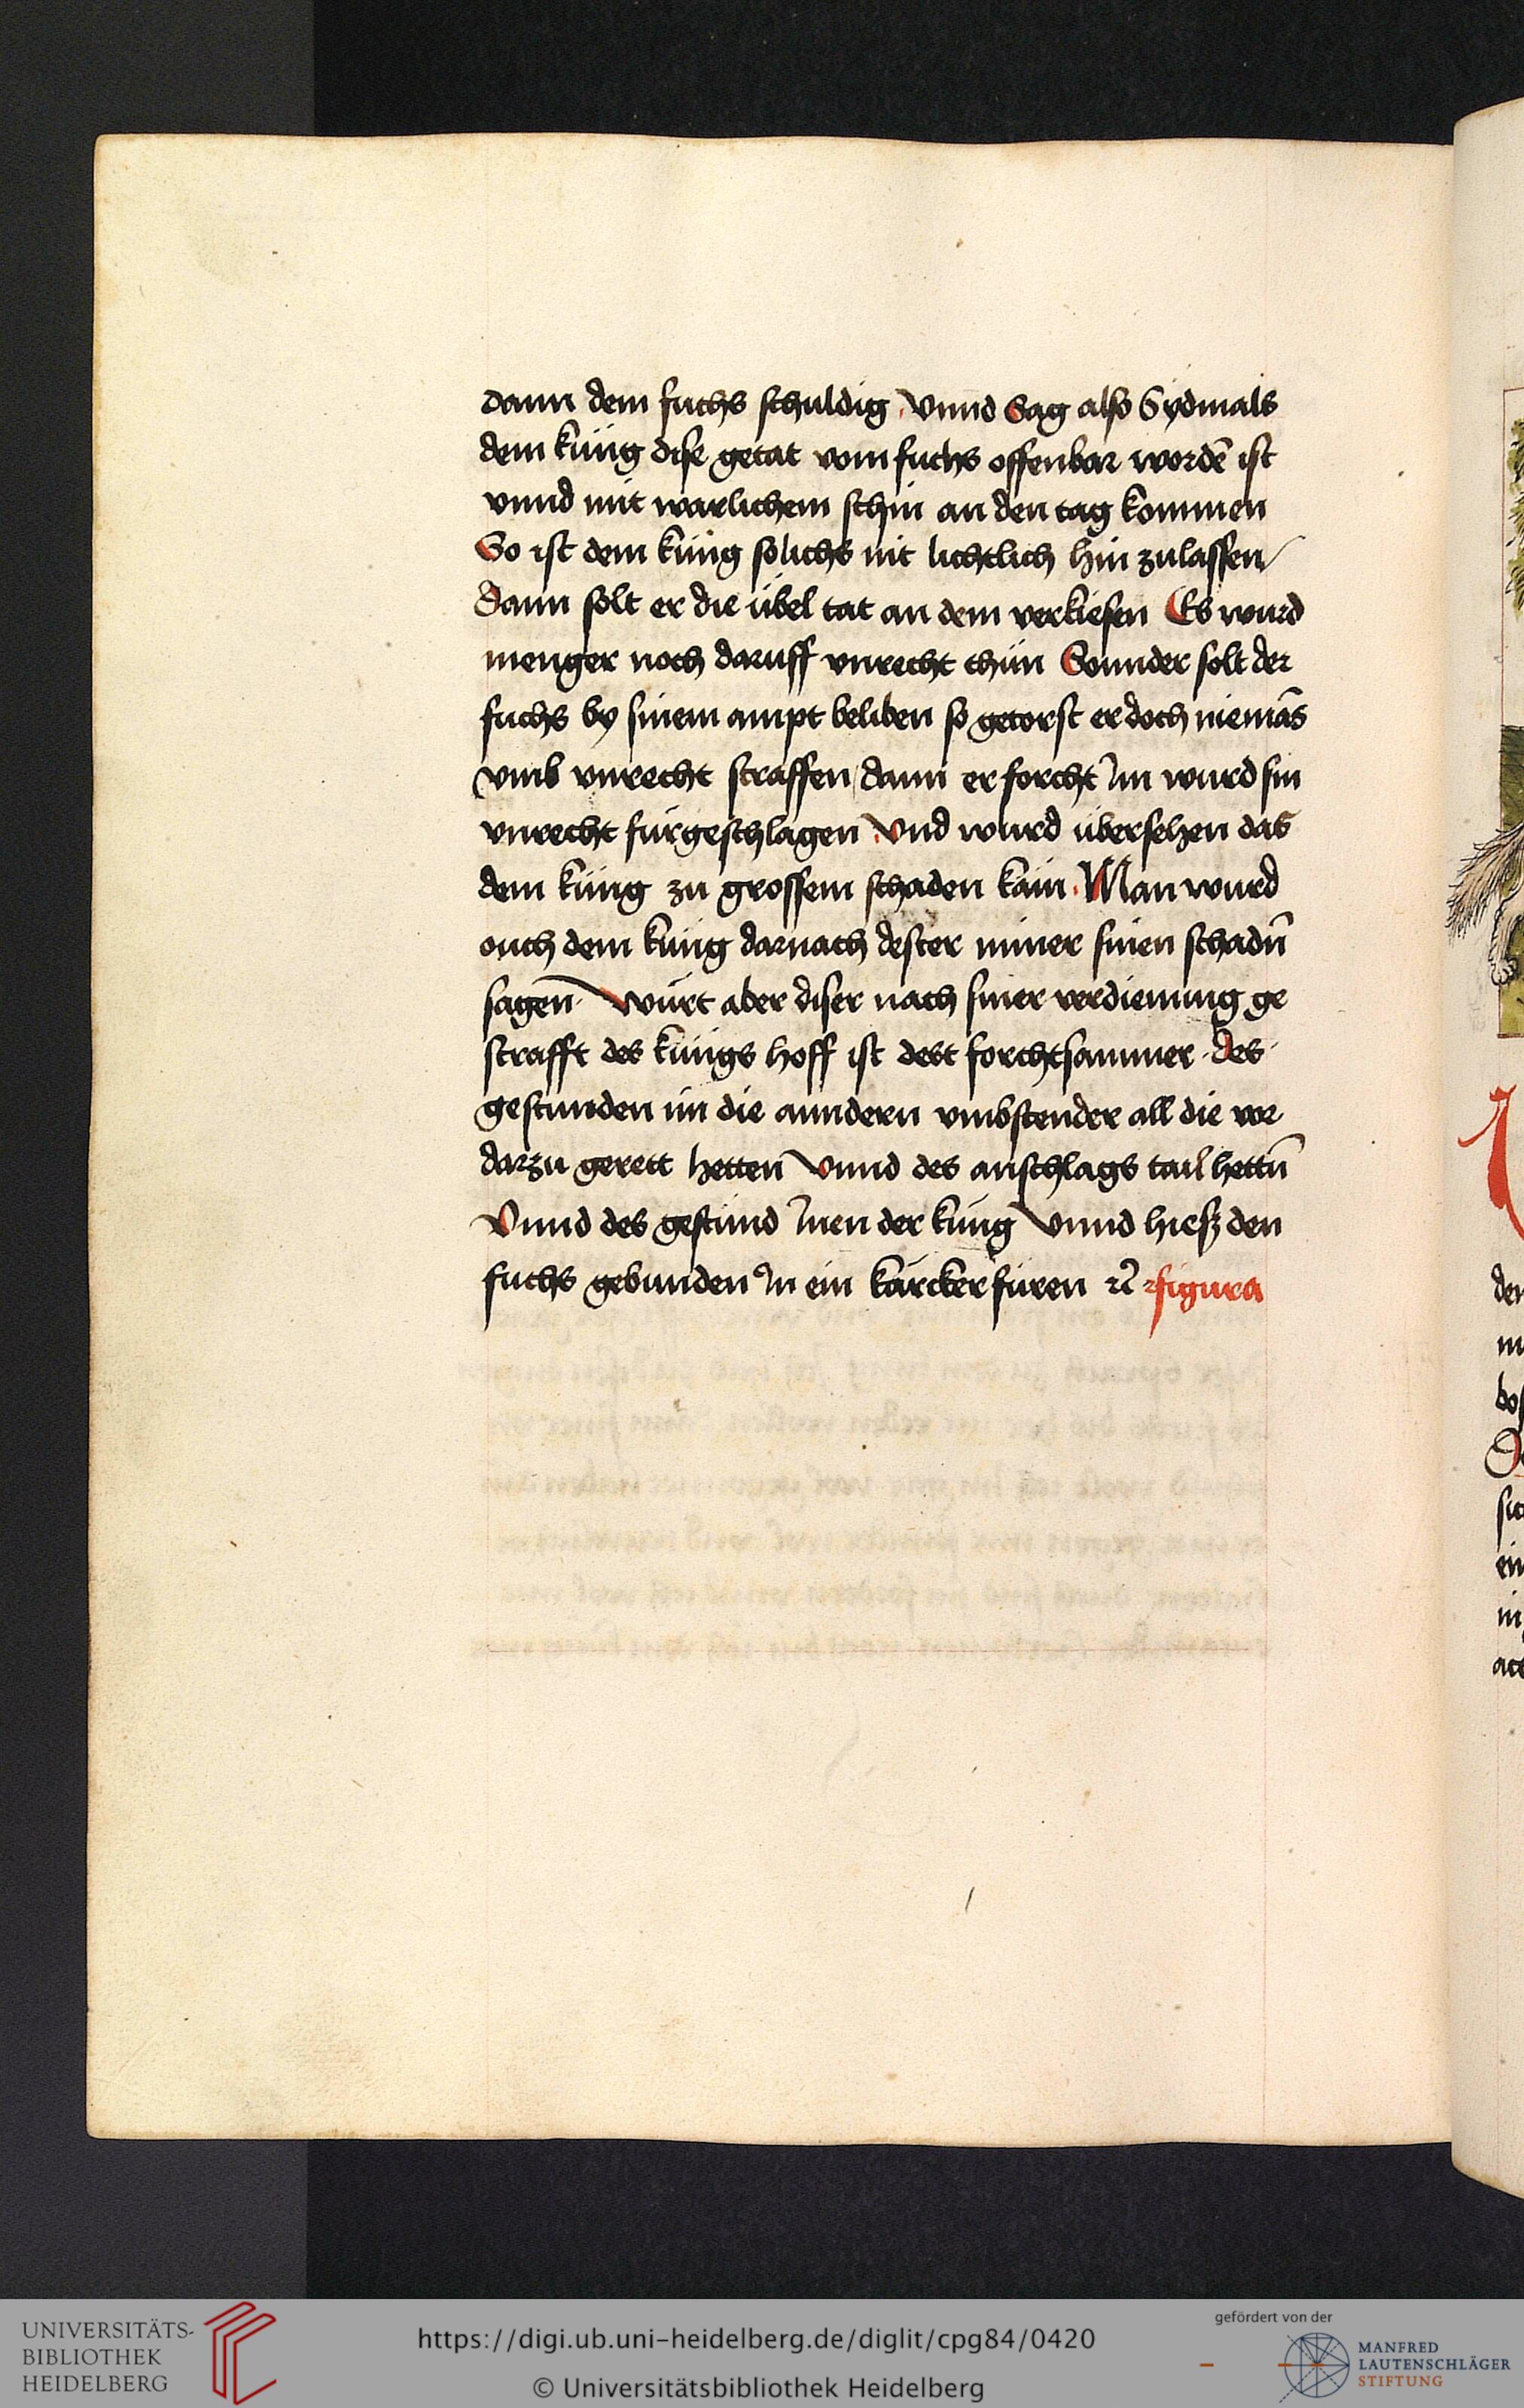 dann dem fuchs schuldig . Vnnd Sag also Sydmals
dem kúng dise getat vom fuchs offenbar wordē ist
vnnd mit warlichem schin an den tag kommen
So ist dem kúng sólichs nit lichtlich hin zulassen /
dann solt er die úbel tat an dem verkiesen Es wurd
menger noch daruff vnrecht thún Sonnder solt der
fuchs by sinem ampt beliben so getorst er doch niemās
vmb vnrecht straffen / dann er forcht Im wurd sin
vnrecht fúrgeschlagen . Vnd wurd úbersehen das
dem kúng zu grossem schaden kám . Man wurd
ouch dem kúng darnach dester miner sinen schadn̄
sagen · Wúrt aber diser nach siner verdienung ge
strafft des kúngs hoff ist dest forchtsammer · des ·
gestunden im die anndern vmbstender all die vor
darzu gerett hetten Vnnd des anschlags tail hettn̄
Vnnd des gestúnd Inen der kúng Vnnd hiesz den
fuchs gebunden In ein kárcker fúren ⁊c̄ figura
den
ein
UNIVERSITÄTS-
BIBLIOTHEK
HEIDELBERG
https://digi.ub.uni-heidelberg.de/diglit/cpg84/0420
© Universitätsbibliothek Heidelberg
gefördert von der
MANFRED
LAUTENSCHLÄGER
STIFTUNG